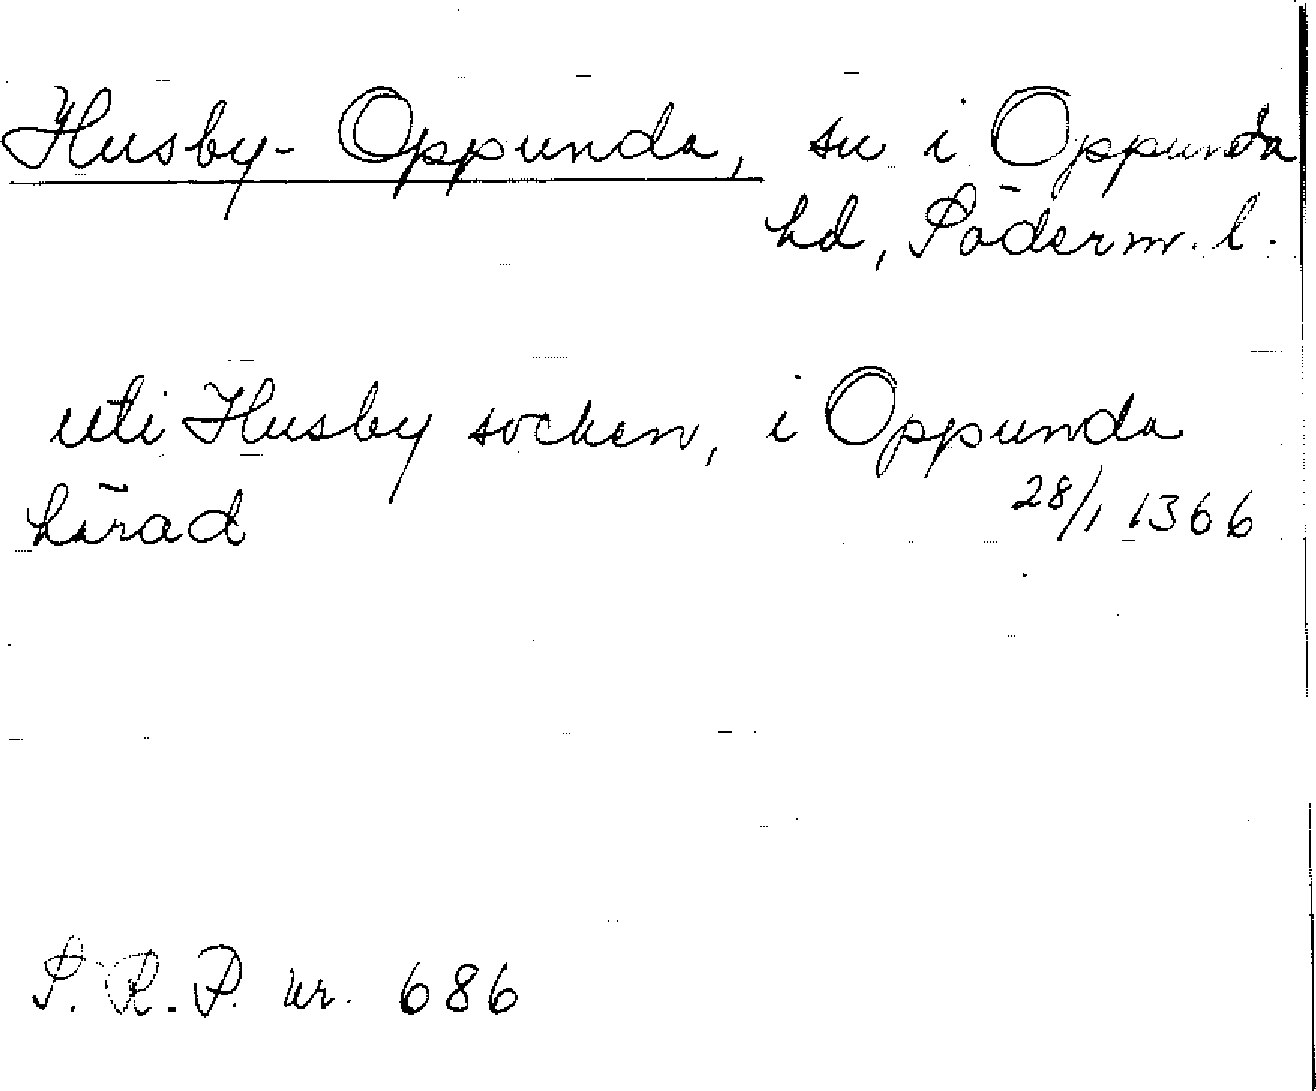 Husby-Oppunda, sn i Oppunda
hd, Söderm. l.
uti Husby socken, i Oppunda
härad
28/1 1366
S. R. P. nr. 686